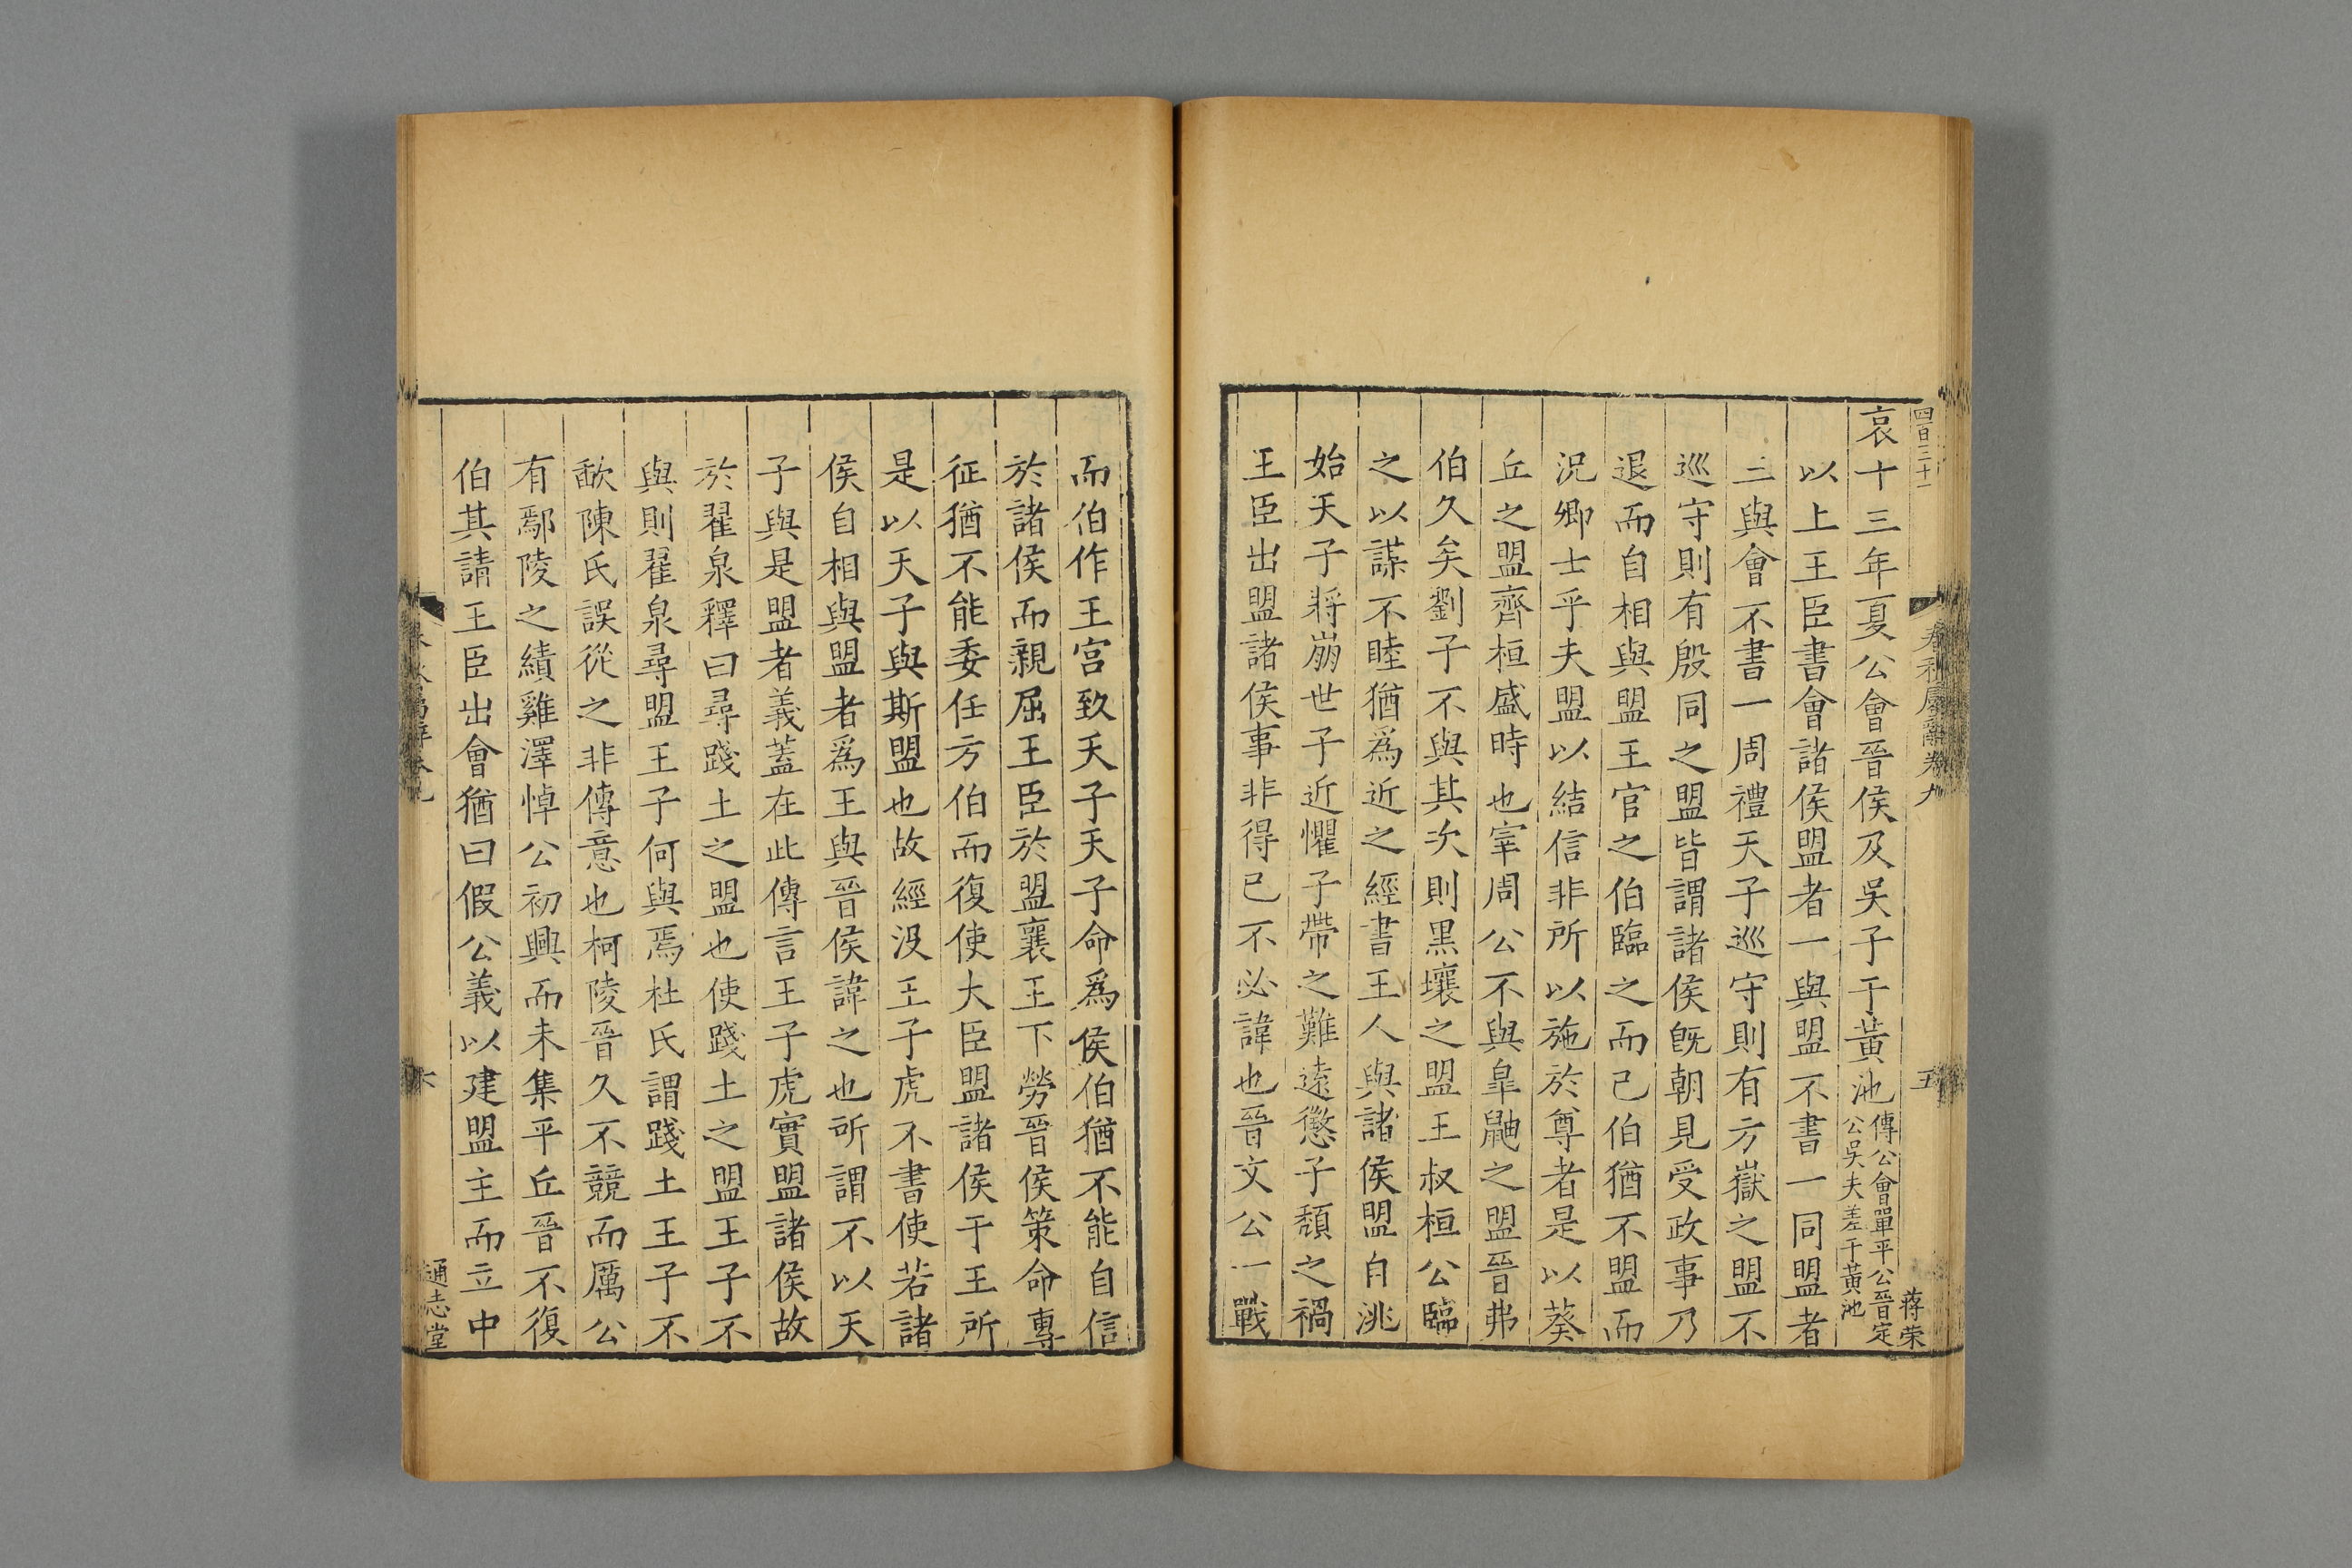 四百三十一
春秋屬辭卷九
五
蒋荣
哀十三年夏公會晉侯及吳子于黃池傳公會單平公晉定公吳夫差于黃池
以上王臣書會諸侯盟者一與盟不書一同盟者
三與會不書一周禮天子巡守則有方嶽之盟不
巡守則有殷同之盟皆謂諸侯旣朝見受政事乃
退而自相與盟王官之伯臨之而已伯猶不盟而
況卿士乎夫盟以結信非所以施於尊者是以葵
丘之盟齊桓盛時也宰周公不與皐鼬之盟晉弗
伯久矣劉子不與其次則黑壤之盟王叔桓公臨
之以謀不睦猶爲近之經書王人與諸侯盟自洮
始天子將崩世子近懼子帶之難遠懲子頹之禍
王臣出盟諸侯事非得已不必諱也晉文公一戰
而伯作王宮致天子天子命爲侯伯猶不能自信
於諸侯而親屈王臣於盟襄王下勞晉侯策命專
征猶不能委任方伯而復使大臣盟諸侯于王所
是以天子與斯盟也故經沒王子虎不書使若諸
侯自相與盟者爲王與晉侯諱之也所謂不以天
子與是盟者義蓋在此傳言王子虎實盟諸侯故
於翟泉釋曰尋踐土之盟也使踐土之盟王子不
與則翟泉尋盟王子何與焉杜氏謂踐土王子不
歃陳氏誤從之非傳意也柯陵晉久不競而厲公
有鄢陵之績雞澤悼公初興而未集平丘晉不復
伯其請王臣出會猶曰假公義以建盟主而立中
春秋屬辭卷九
六
通志堂